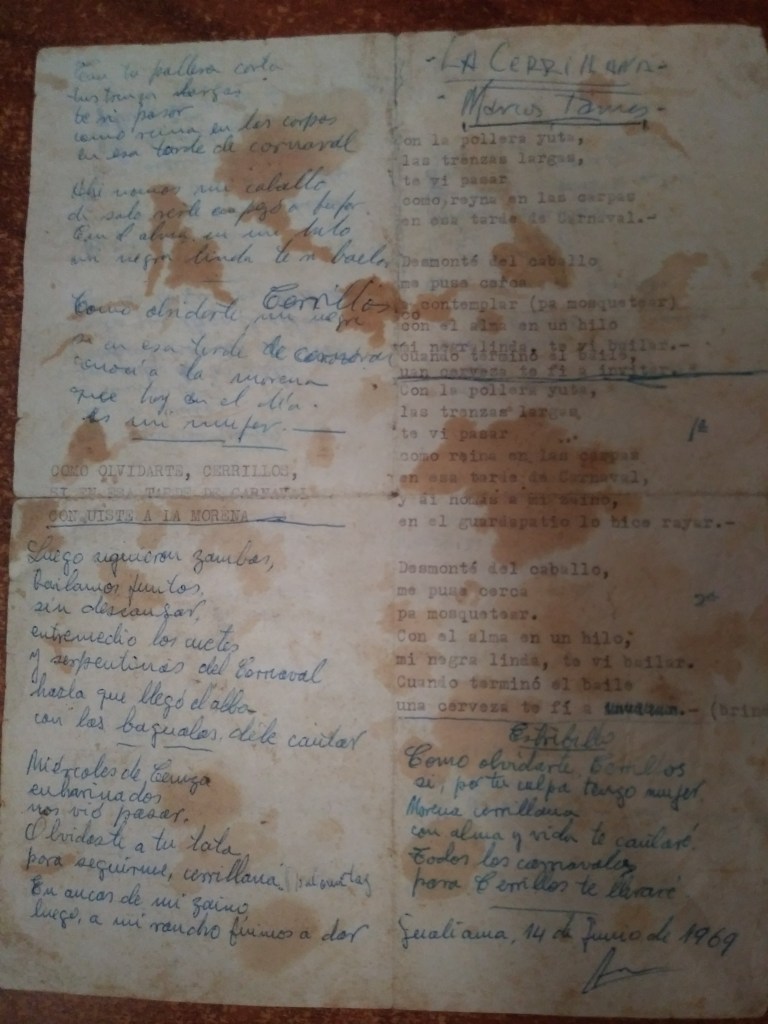 Con tu pollera corta
tus trenzas largas
te vi pasar
como reina en las carpas
en esa tarde de carnaval
mi caballo
de
Con el alma en un hilo
mi negra linda te vi bailar
Como olvidarte Cerrillos
mi negra
si en esa tarde de carnaval
conocí a la morena
que hoy en el día.
es mi mujer.
COMO OLVIDARTE, CERRILLOS,
SI EN ESA TARDE DE CARNAVAL
CONQUISTE A LA MORENA
Luego siguieron zambas,
bailamos juntos,
sin descanzar,
entremedio los
y serpentinas del Carnaval
hasta que llegó el alba
con las bagualas, déle cantar
Miércoles de Ceniza
enharinados
nos vió pasar.
Olvidaste a tu tata
para seguirme, cerrillana
En ancas de mi zaino
luego, a mi rancho fuimos a dar
- LA CERRILLANA -
- Marcos Tames -
Con la pollera yuta,
las trenzas largas,
te vi pasar
como reyna en las carpas
en esa tarde de Carnaval.-
Desmonté del caballo
me puse cerca
a contemplar (pa mosquetear)
con el alma en un hilo
mi negralinda, te vi bailar.-
cuando terminó el baile,
uan cerveza te fi a invitar.
Con la pollera yuta,
las trenzas largas,
te vi pasar ...
1ª
como reina en las carpas
en esa tarde de Carnaval,
y ái nomás a mi zaino,
en el guardapatio lo hice rayar.-
Desmonté del caballo,
me puse cerca
2ª
pa mosquetear.
Con el alma en un hilo,
mi negra linda, te vi bailar.
Cuando terminó el baile
una cerveza te fi a invitar.- (brin
Estribillo
Como olvidarte, Cerrillos
si, por tu culpa tengo mujer.
Morena cerrillana
con alma y vida te cantaré.
Todos los carnavales
para Cerrillos te llevaré
14 de Junio de 1969